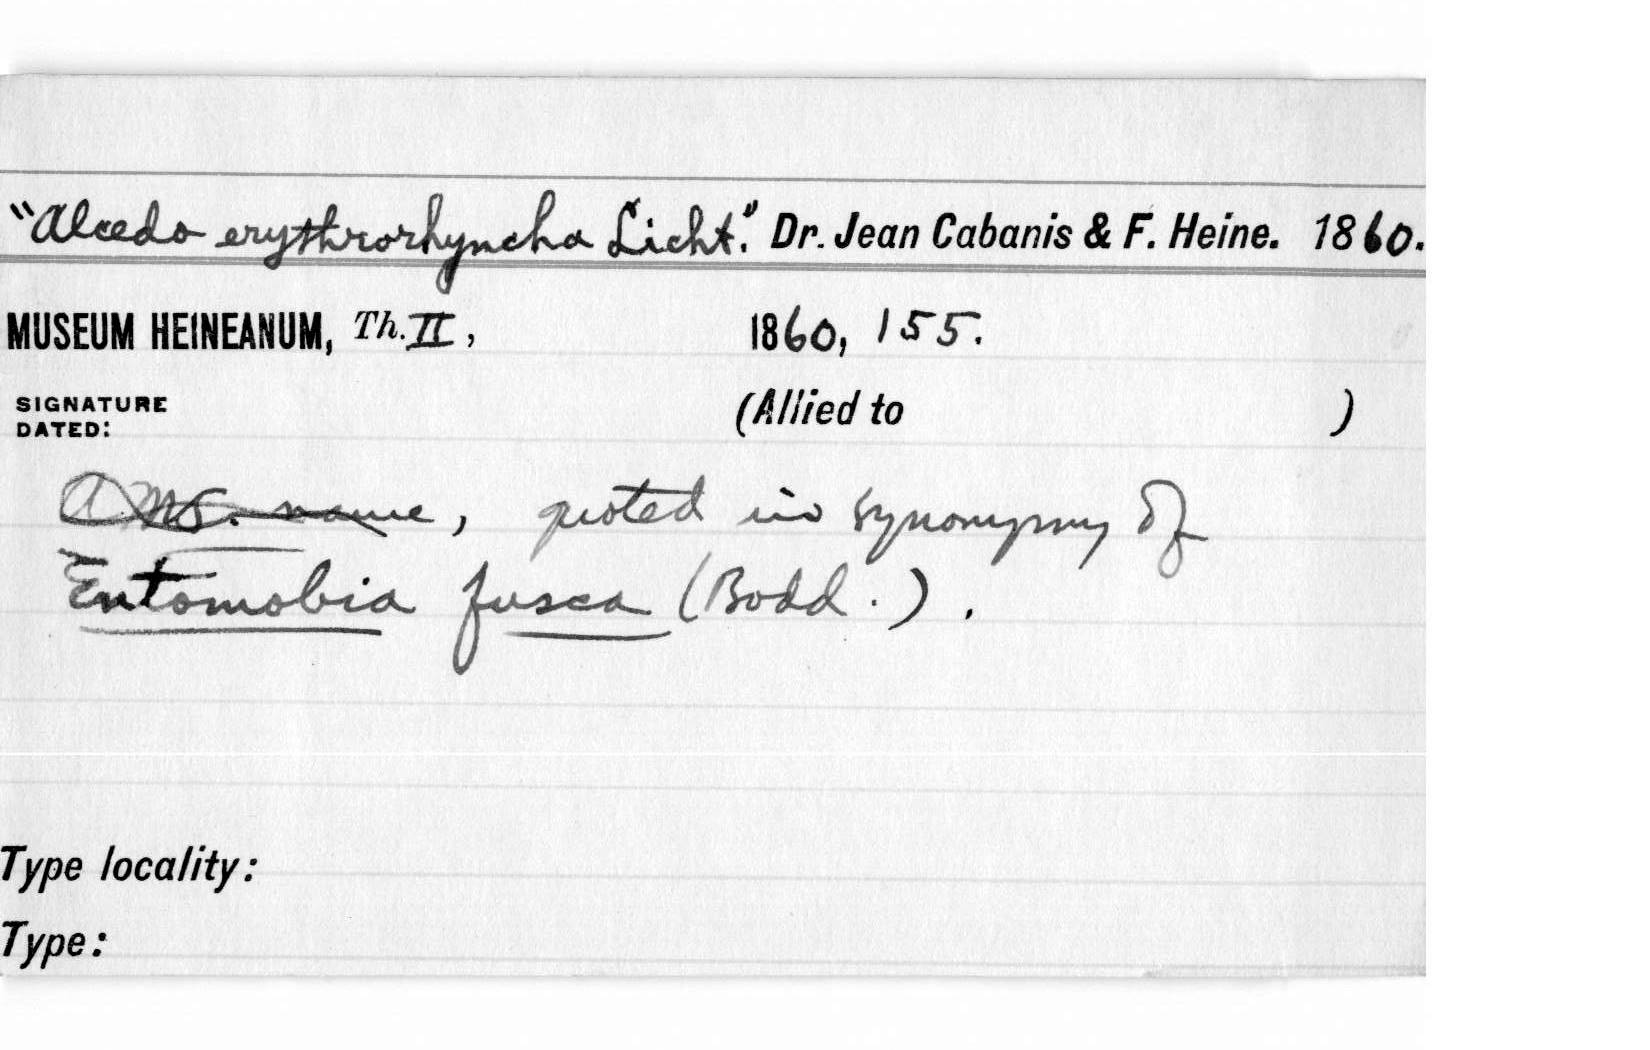 "Alcedo erythrorhyncha Licht." Dr. Jean Cabanis & F. Heine. 1860.
MUSEUM HEINEANUM, Th. II, 1860, 155.
SIGNATURE
DATED:
(Allied to )
A MS. name, quoted in synonymy of
Entomobia fusca (Bodd.).
Type locality:
Type: